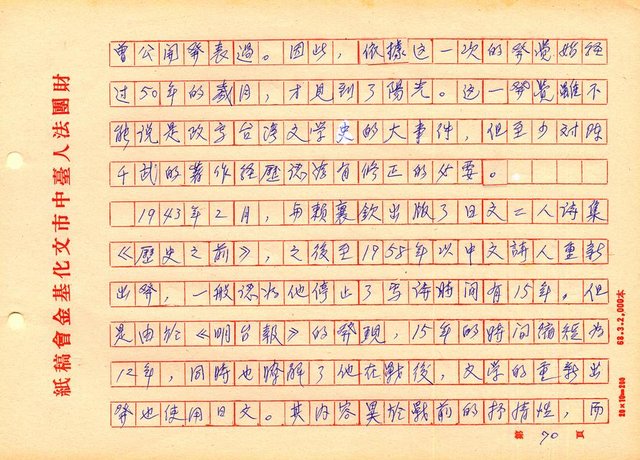 曾公開發表過。因此，依據這一次的發覺始經
过50年的歲月，才見到了陽光。这一發覺雖不
能说是改寫台湾文学史的大事件，但至少对陳
千武的著作經歷認為有修正的必要。
1943年2月，与賴襄欽出版了日文二人诗集
《歷史之前》，之後至1958年以中文詩人重新
出發，一般認为他停止了写诗時间有15年。但
是由於《明台報》的發現，15年的時间縮短为
12年，同時也瞭解了他在戰後，文学的重新出
發也使用日文。其内容異於戰前的抒情性，而
財團法人臺中市文化基金會稿紙
68.3.2,000本
20×10＝200
第 70 頁